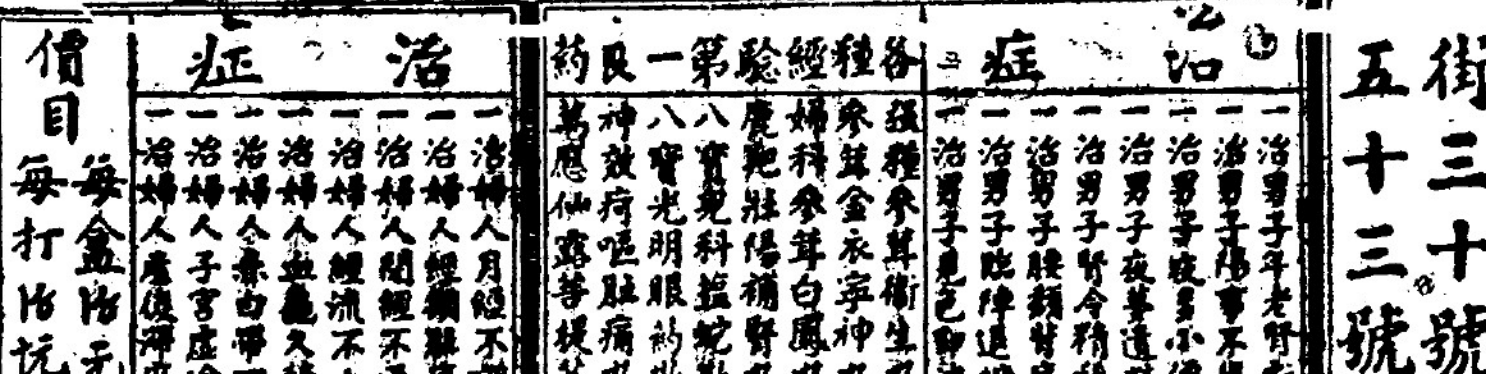 街三十號
五十三號
治症
一治男子年老腎
一治男子陽事不
一治男子夜多小便
一治男子夜夢遺
一治男子腎冷精
一治男子腰
一治男子臨陣退
一治男子見色
各種經驗第一良药
強種參茸衛生
參茸金衣寧神
婦科參茸白鳳
鹿鞭壯陽補腎
八寶兒科鹽蛇散
八寶光明眼药散
神效疴嘔肚痛
萬應仙露菩提
治症
一治婦人月經不
一治婦人經
一治婦人閉經不
一治婦人經流不
一治婦人血龜久
一治婦人赤白帶
一治婦人子宮虛冷
一治婦人產後
價目
每盒沽元
每打沽